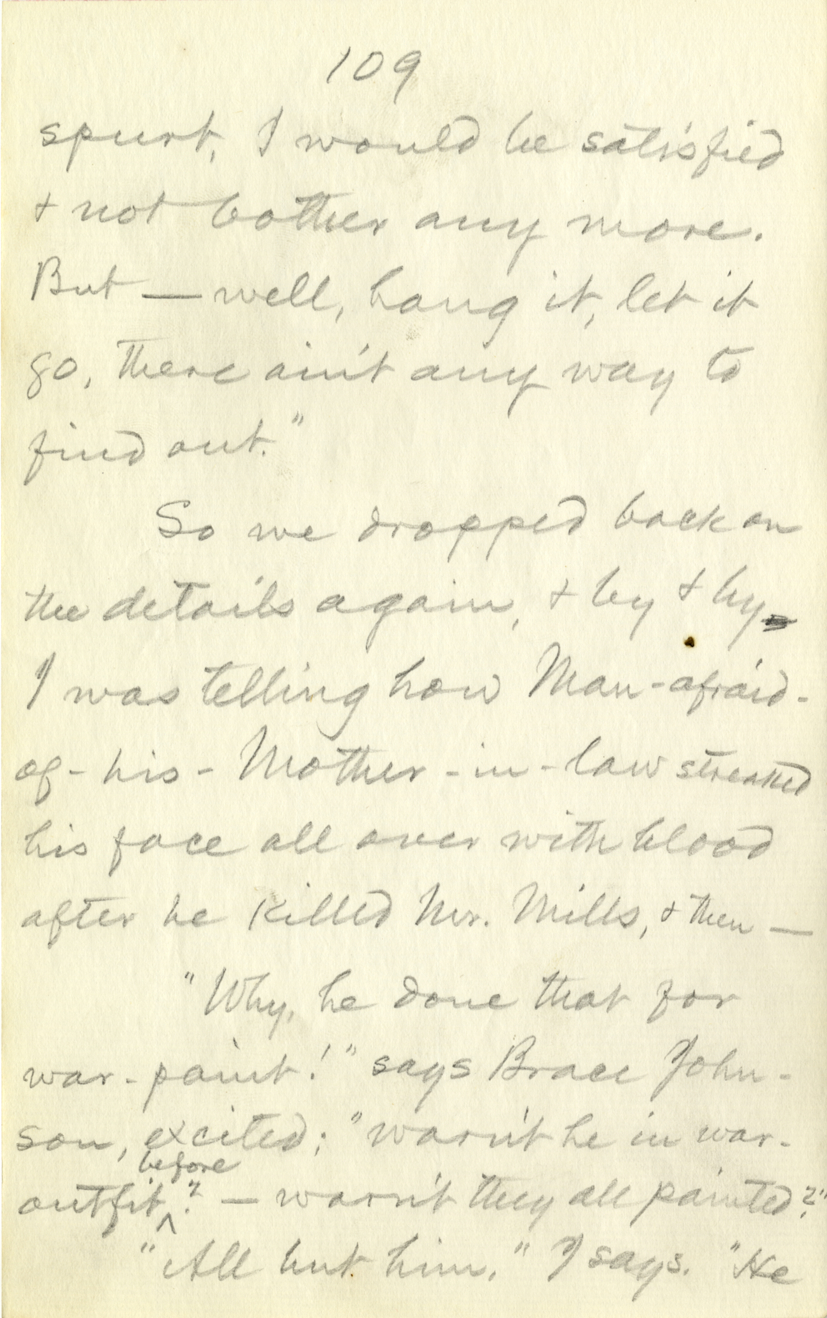 109
spurt, I would be satisfied
& not bother any more.
But — well, hang it, let it
go, there ain't any way to
find out."
So we dropped back on
the details again, & by & by
I was telling how Man-afraid-
of-his-Mother-in-law streaked
his face all over with blood
after he killed Mr. Mills, & then —
"Why, he done that for
war-paint!" says Brace John-
son, excited; "warn't he in war-
before
outfit? — warn't they all painted?"
"All but him," I says. "He